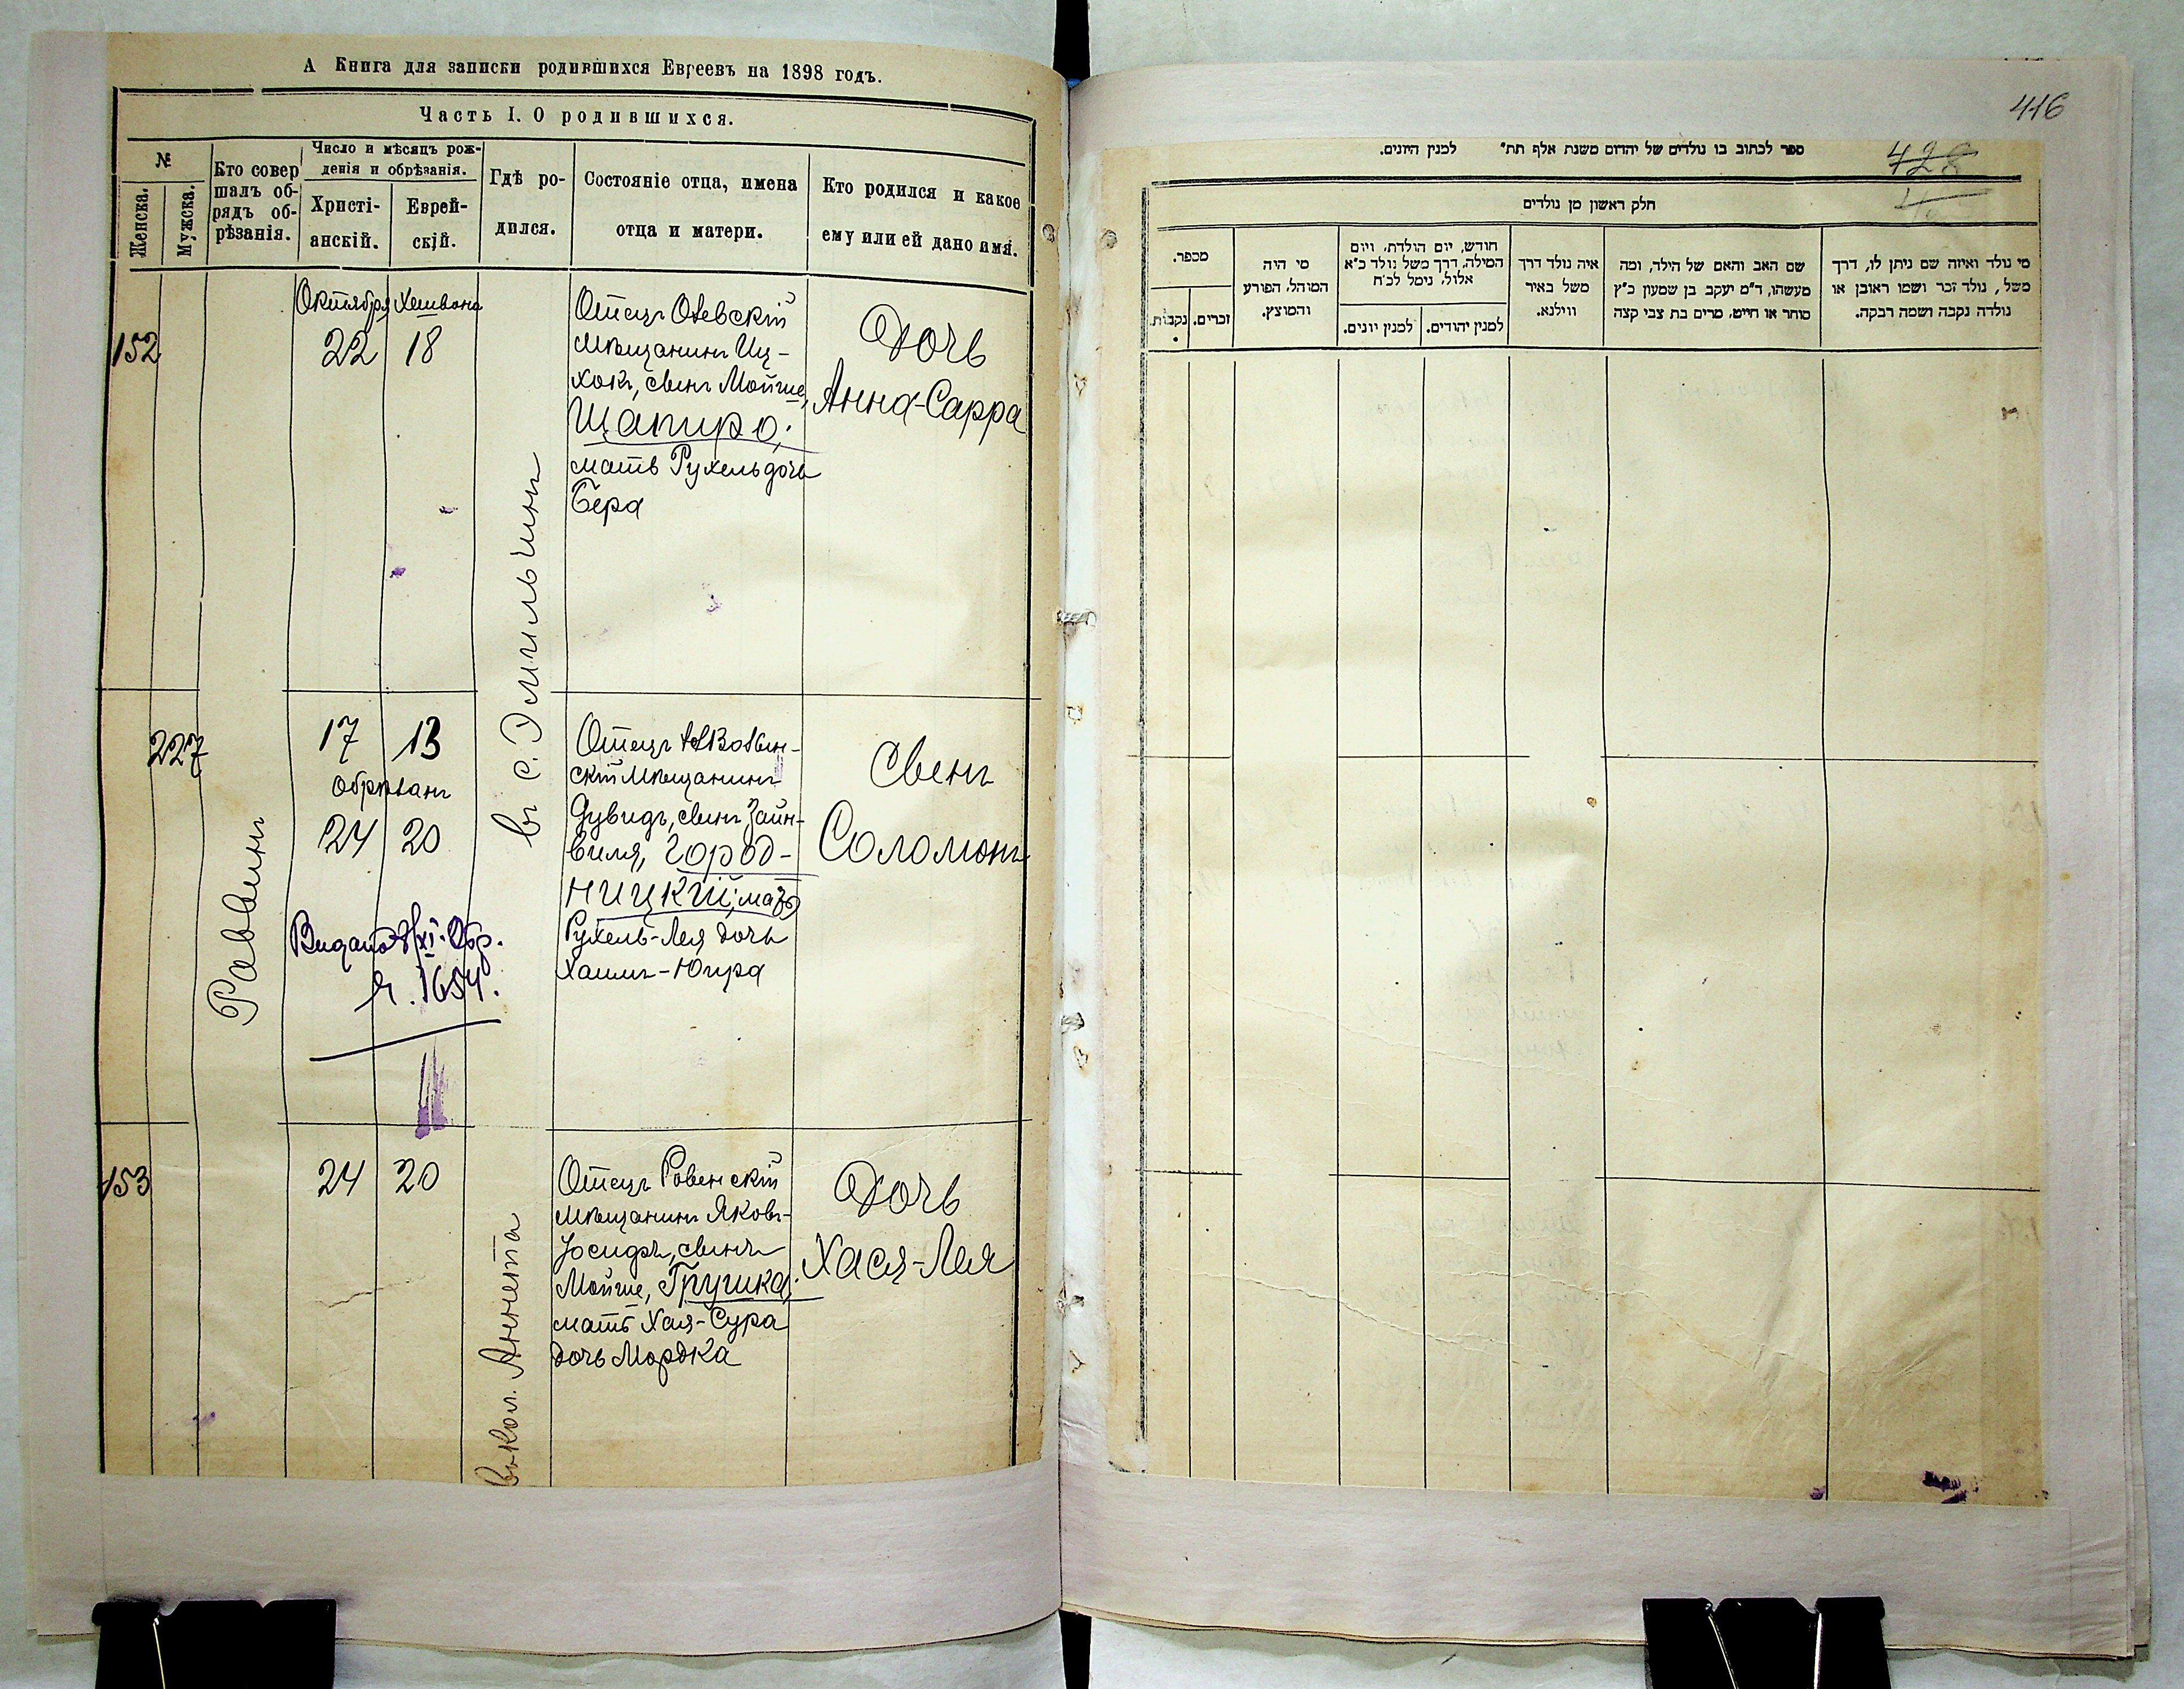 А Книга для записки родившихся Евреевъ на 1898 годъ.
Часть I. О родившихся.
№
Женска.
Мужска.
Кто совер
шалъ об-
рядъ об-
рѣзанія.
Число и мѣсяцъ рож-
денія и обрѣзанія.
Христі-
анскій.
Еврей-
скій.
Гдѣ ро-
дился.
Состояніе отца, имена
отца и матери.
Кто родился и какое
ему или ей дано имя.
152
Октября Хешвона
22 18
Отецъ Олевскій
мѣщанинъ Иц-
хокъ, сынъ Мойше,
Шапиро;
мать Рухель дочь
Бера
Дочь
Анна-Сарра
въ с. Эмильчинѣ
227
Раввинъ
17 13
Обрѣзанъ
24 20
Отецъ
скій мѣщанинъ
Дувидъ, сынъ Зайн-
виля, Город-
ницкій; мать
Рухель-Лея дочь
Хаимъ-Юира
Сынъ
Соломонъ
Выдано
№. 1654.
153
24 20
въ кол. Аннета
Отецъ Ровенскій
мѣщанинъ Яковъ-
Іосифъ, сынъ
Мойше, Грушка;
мать Хая-Сура
дочь Мордка
Дочь
Хася-Лея
416
428
ספר לכתוב בו נולדים של יהדום משנת אלף תת״ למנין היונים.
חלק ראשון מן נולדים
מספר.
זכרים.
נקבות.
מי היה
המוהל, הפורע
והמוצץ.
חודש, יום הולדת, ויום
המילה, דרך משל נולד כ״א
אלול, נימל לכ״ח
למנין יהודים.
למנין יונים.
איה נולד דרך
משל באיר
ווילנא.
שם האב והאם של הילד, ומה
מעשהו, ד״מ יעקב בן שמעון כ״ץ
סוחר או חייט, מרים בת צבי קצה
מי נולד ואיזה שם ניתן לו, דרך
משל, נולד זכר ושמו ראובן או
נולדה נקבה ושמה רבקה.